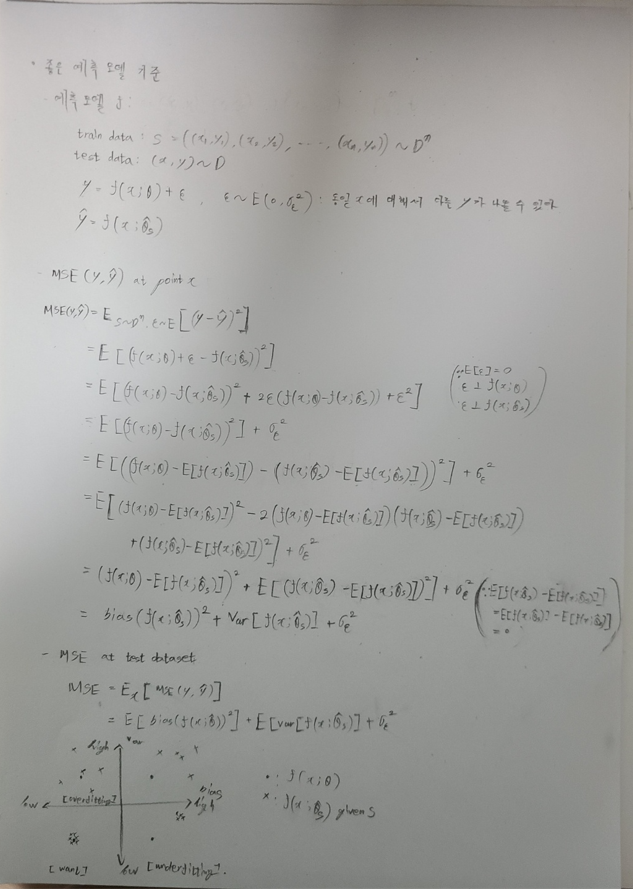 • 좋은 예측 모델 기준
- 예측 모델 f:
train data : S = ((x₁,y₁), (x₂,y₂), ..., (xₙ,yₙ)) ~ Dⁿ
test data : (x, y) ~ D
y = f(x;θ) + ε , ε ~ E(0, σ_ε²) : 동일 x에 대해서 다른 y가 나올 수 있다
ŷ = f(x;θ̂_s)
- MSE(y,ŷ) at point x
MSE(y,ŷ) = E_{S~Dⁿ, ε~E}[(y-ŷ)²]
= E[(f(x;θ)+ε-f(x;θ̂_s))²]
= E[(f(x;θ)-f(x;θ̂_s))² + 2ε(f(x;θ)-f(x;θ̂_s)) + ε²] (∵ E[ε]=0
ε ⊥ f(x;θ)
ε ⊥ f(x;θ̂_s))
= E[(f(x;θ)-f(x;θ̂_s))²] + σ_ε²
= E[((f(x;θ)-E[f(x;θ̂_s)]) - (f(x;θ̂_s)-E[f(x;θ̂_s)]))²] + σ_ε²
= E[(f(x;θ)-E[f(x;θ̂_s)])² - 2(f(x;θ)-E[f(x;θ̂_s)])(f(x;θ̂_s)-E[f(x;θ̂_s)])
+(f(x;θ̂_s)-E[f(x;θ̂_s)])²] + σ_ε²
= (f(x;θ)-E[f(x;θ̂_s)])² + E[(f(x;θ̂_s)-E[f(x;θ̂_s)])²] + σ_ε² (∵ E[f(x;θ̂_s)-E[f(x;θ̂_s)]]
= E[f(x;θ̂_s)]-E[f(x;θ̂_s)]
= 0)
= bias(f(x;θ̂_s))² + Var[f(x;θ̂_s)] + σ_ε²
- MSE at test dataset
MSE = E_x[MSE(y,ŷ)]
= E[bias(f(x;θ̂))²] + E[Var[f(x;θ̂_s)]] + σ_ε²
high
var
low
[overfitting]
bias
high
• : f(x;θ)
× : f(x;θ̂_s) given S
[want]
low
[underfitting].